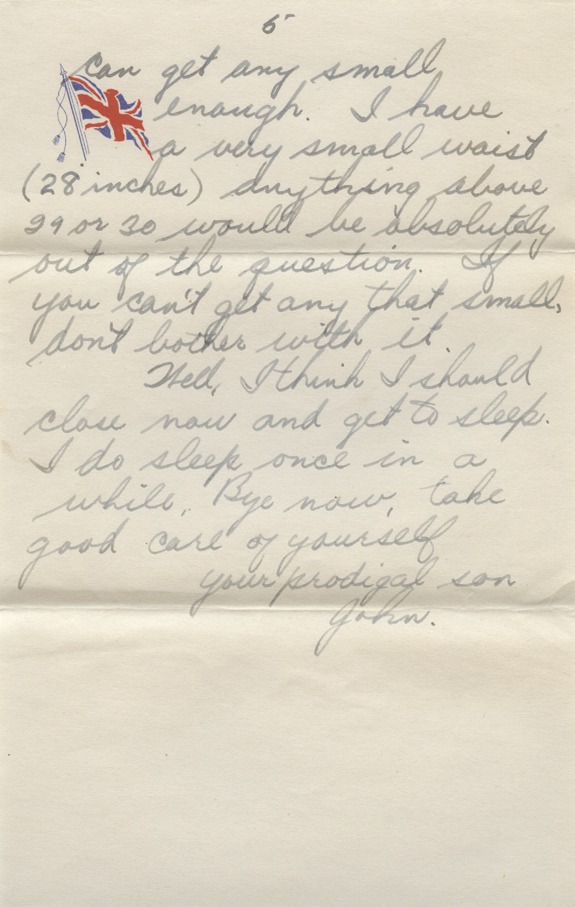 5
can get any small
enough. I have
a very small waist
(28 inches) anything above
29 or 30 would be absolutely
out of the question. If
you can't get any that small,
don't bother with it.
Well, I think I should
close now and get to sleep.
I do sleep once in a
while. Bye now, take
good care of yourself
your prodigal son
John.